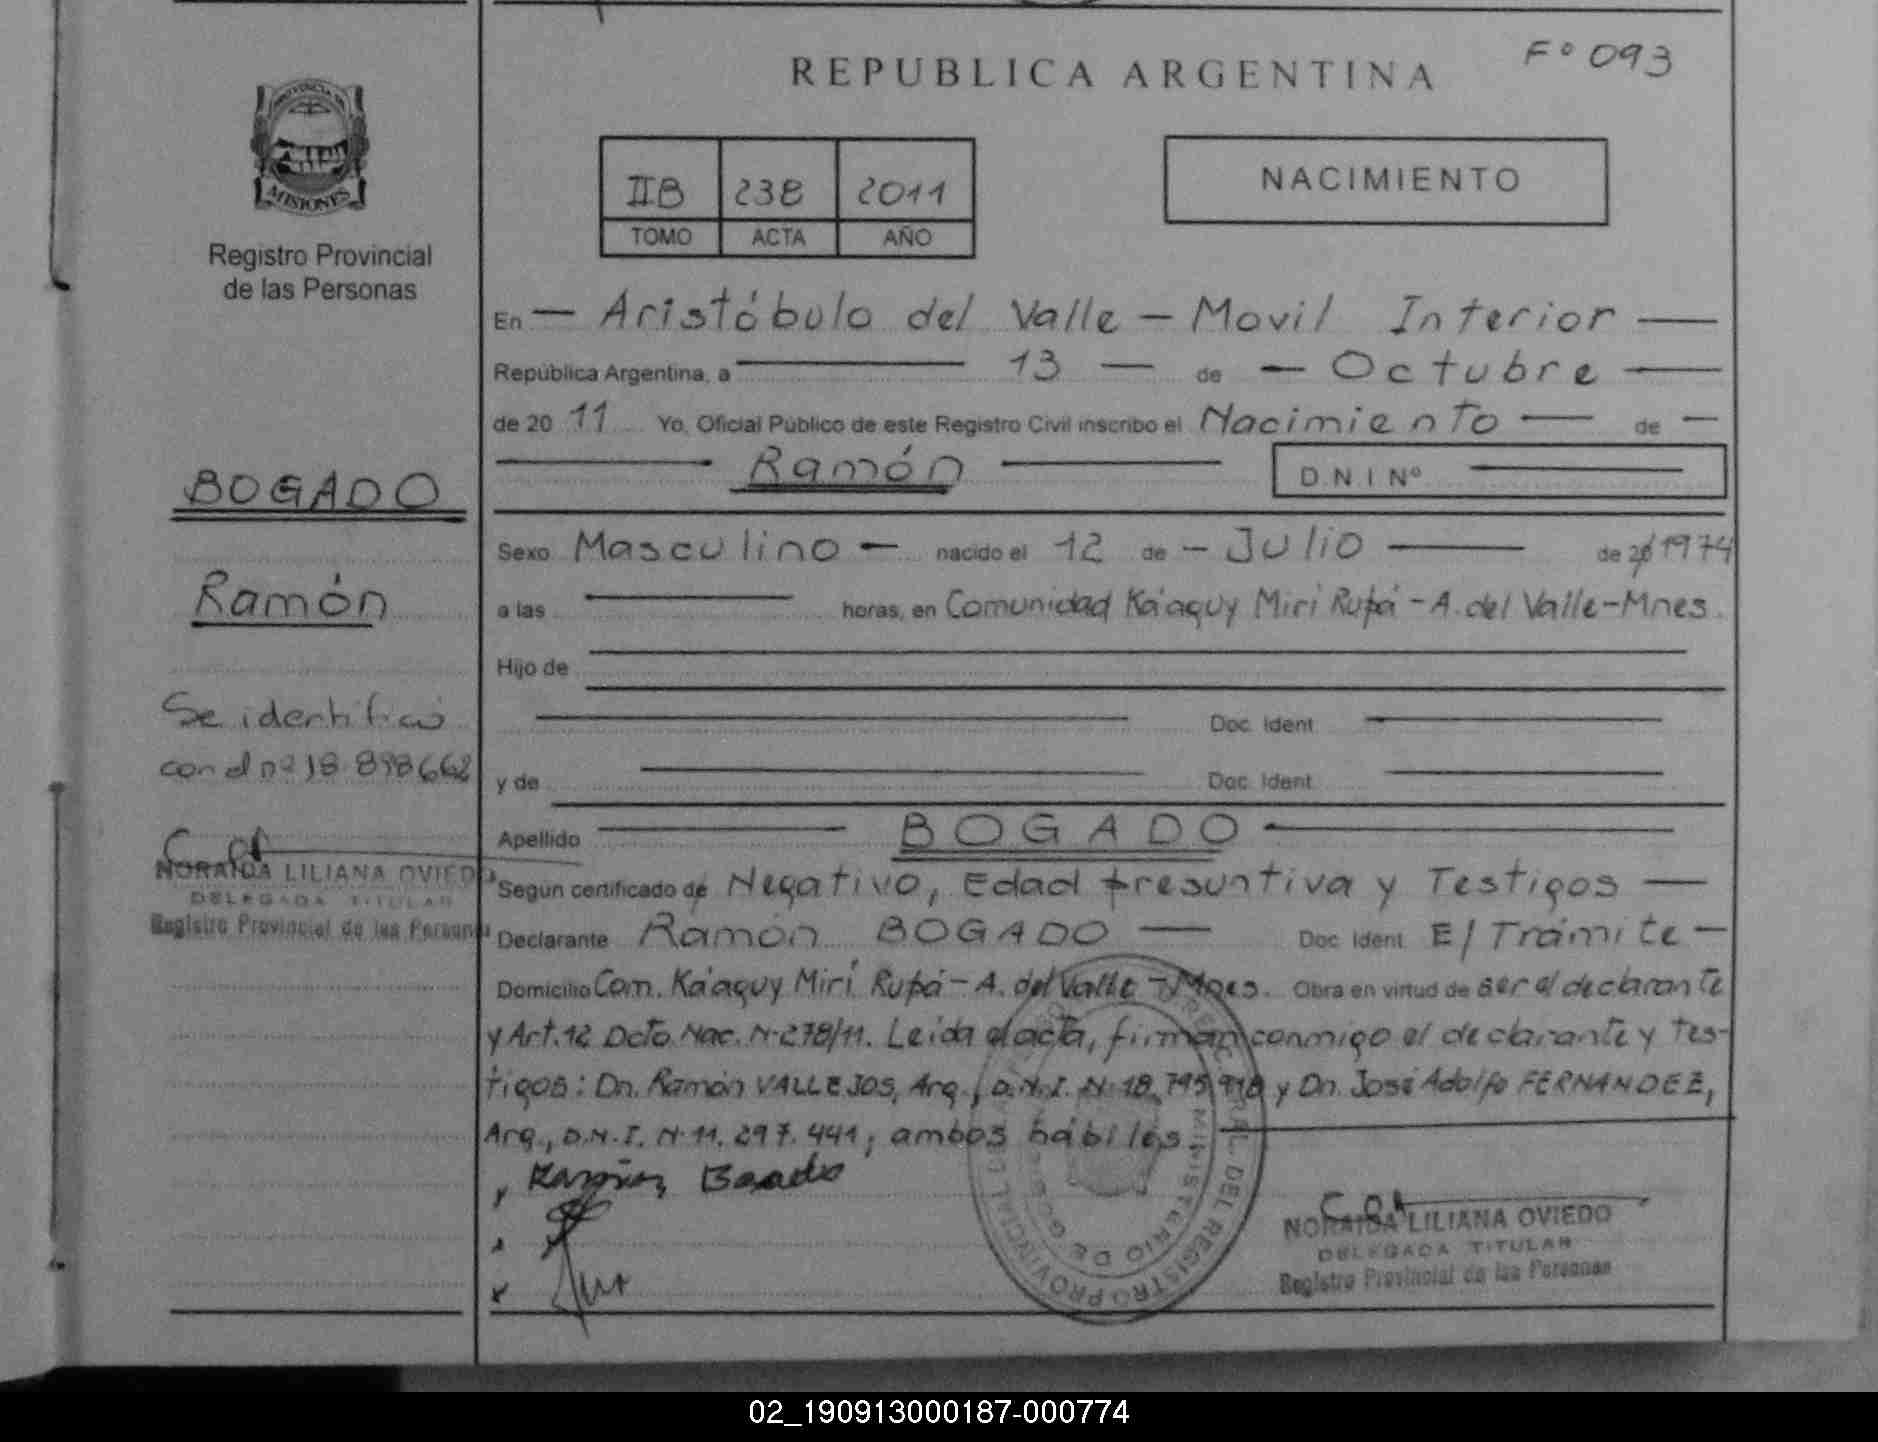 F° 093
REPUBLICA ARGENTINA
PROVINCIA DE
MISIONES
Registro Provincial
de las Personas
IIB 238 2011
TOMO ACTA AÑO
NACIMIENTO
En — Aristóbulo del Valle — Movil Interior —
República Argentina, a — 13 — de — Octubre —
de 20 11 Yo, Oficial Público de este Registro Civil inscribo el Nacimiento — de —
— Ramón — D.N.I Nº —
BOGADO
Ramón
Se identificó
con d nº 18.898662
NORAIDA LILIANA OVIEDO
DELEGADA TITULAR
Registro Provincial de las Personas
Sexo Masculino — nacido el 12 de — Julio — de 20 1974
a las — horas, en Comunidad Ka'aguy Miri Rupá - A. del Valle - Mnes.
Hijo de —
— Doc. Ident. —
y de — Doc. Ident. —
Apellido — BOGADO —
Segun certificado de Negativo, Edad presuntiva y Testigos —
Declarante Ramón BOGADO — Doc. Ident. E/Trámite —
Domicilio Com. Ka'aguy Mirí Rupá - A. del Valle - Mnes. Obra en virtud de ser el declarante
y Art. 12 Dcto. Nac. N·278/11. Leida el acta, firman conmigo el declarante y Tes-
tigos: Dn. Ramón VALLEJOS, Arg., D.N.I. N·18.795.918 y Dn. José Adolfo FERNANDEZ,
Arg., D.N.I. N·11.297.441, ambos hábiles.
REGISTRO PROVINCIAL
MINISTERIO DE
NORAIDA LILIANA OVIEDO
DELEGADA TITULAR
Registro Provincial de las Personas
02_190913000187-000774